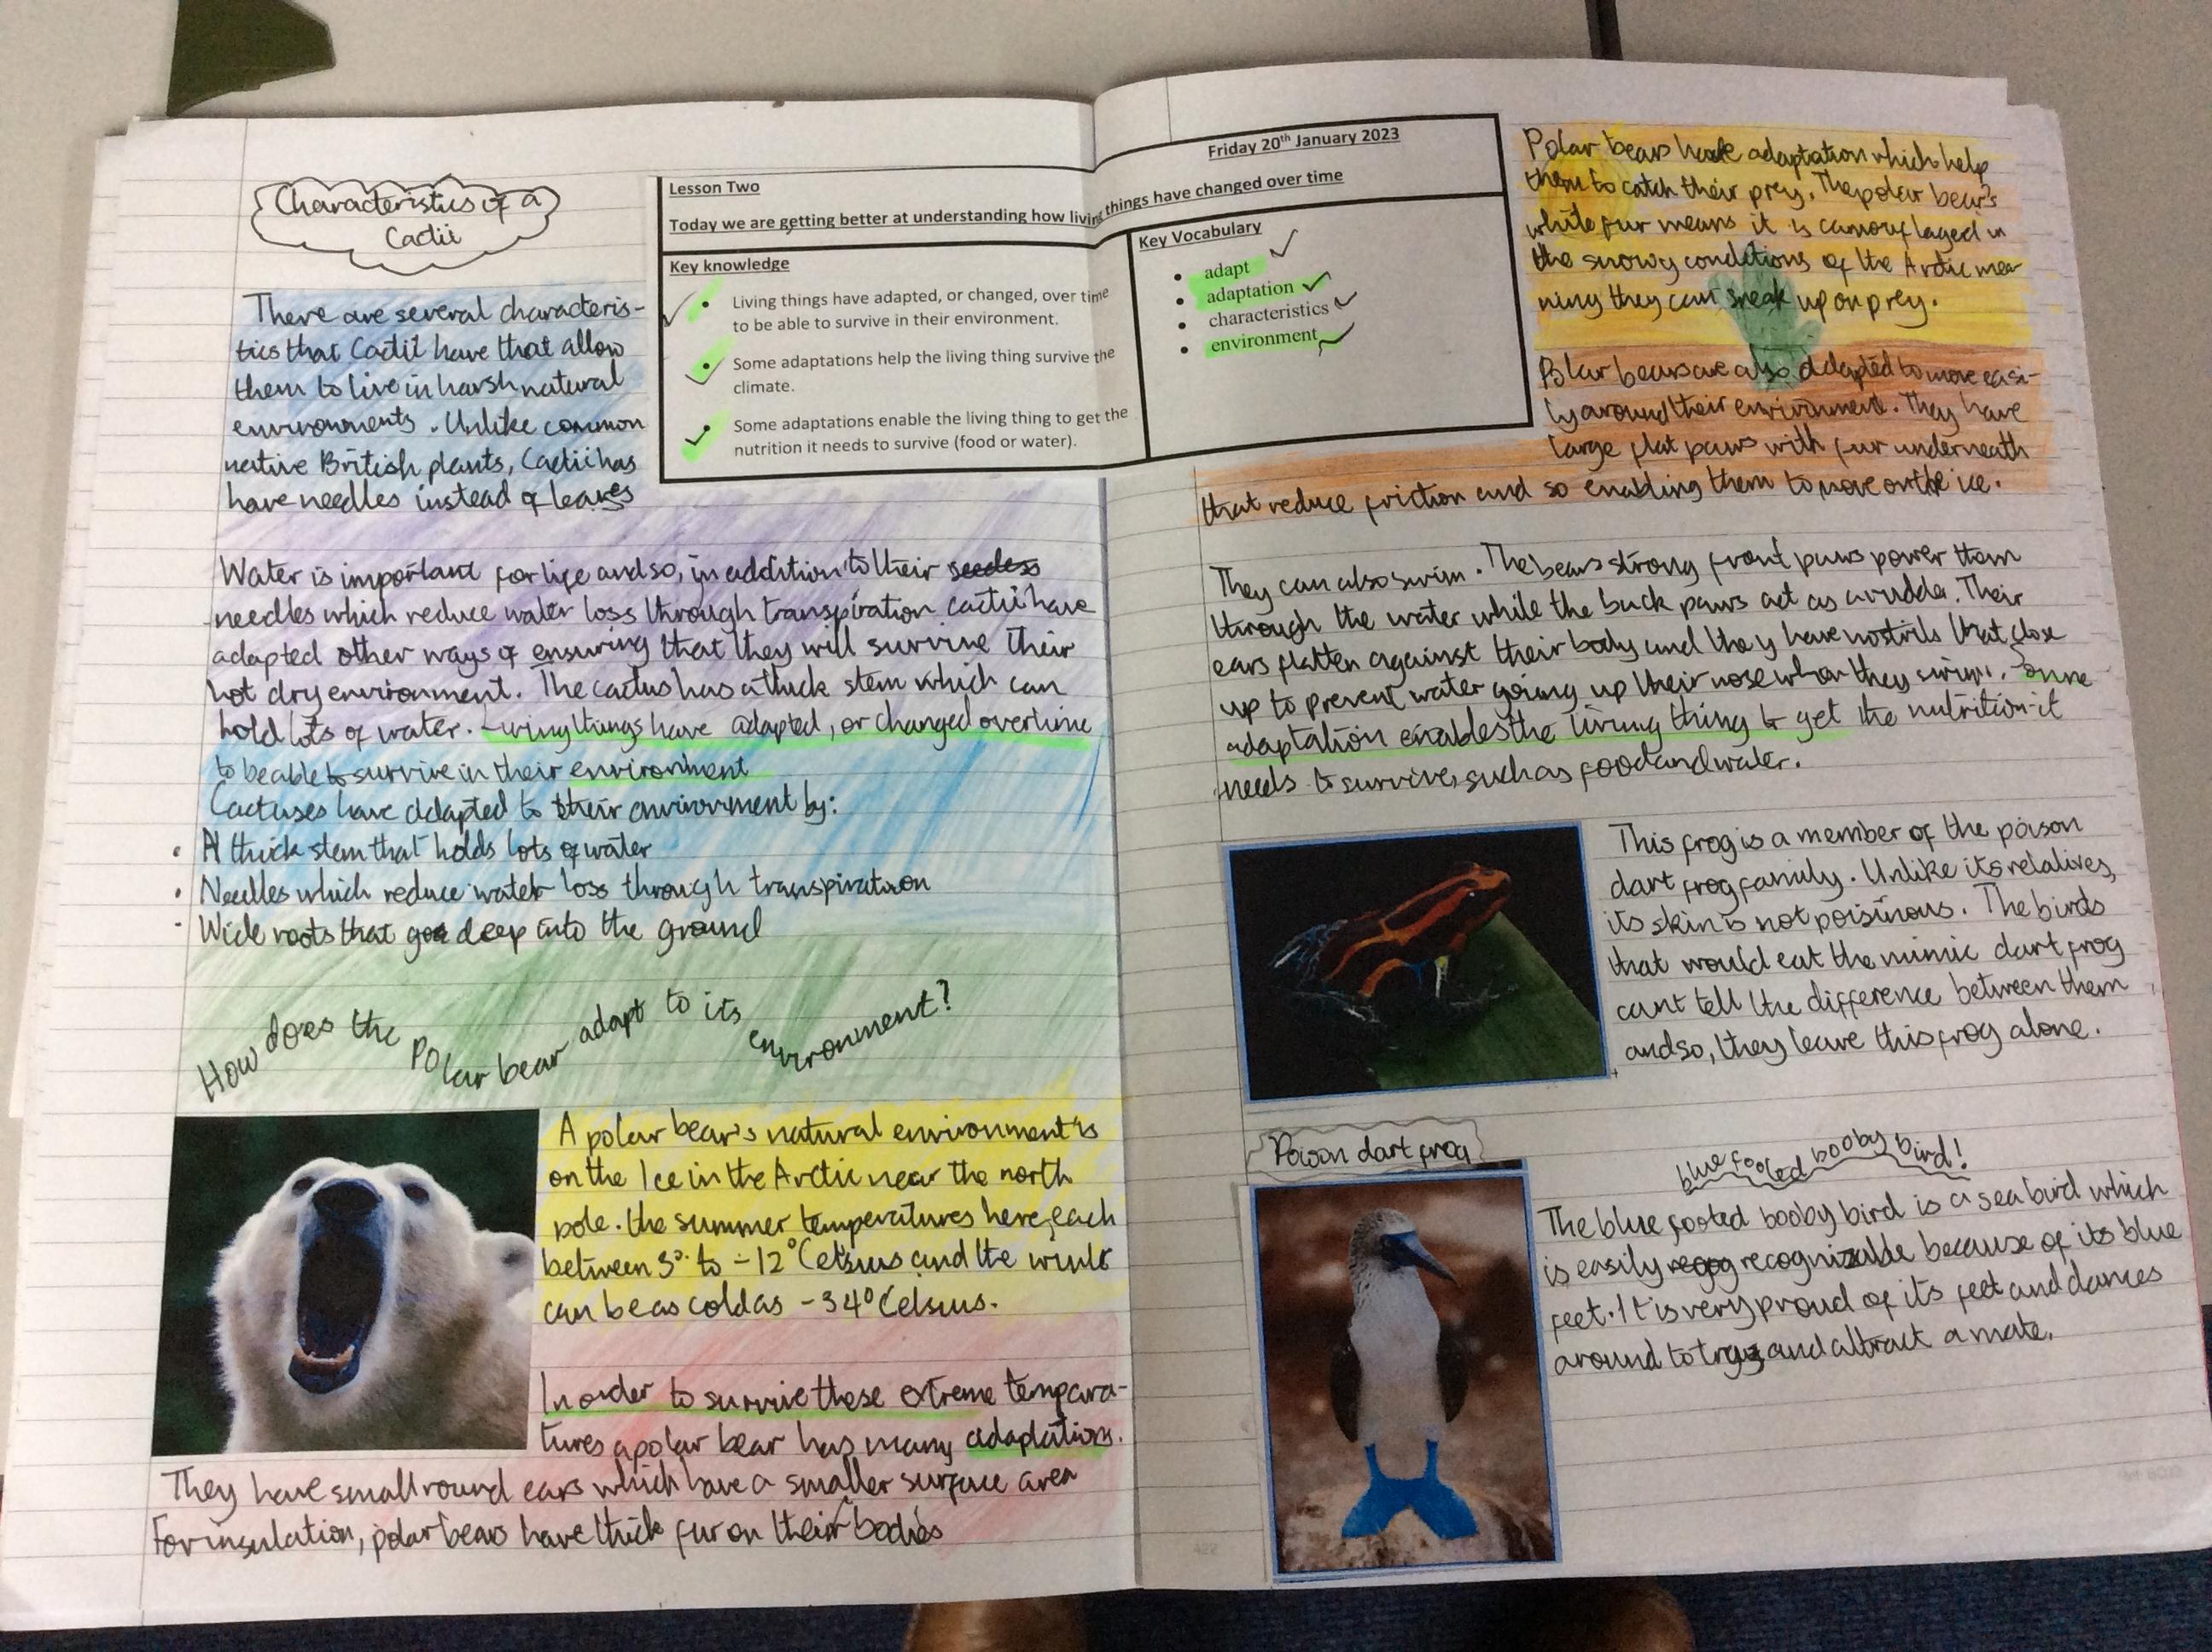 Characteristics of a
Cactii
Lesson Two
Friday 20th January 2023
Today we are getting better at understanding how living things have changed over time
Key knowledge
Living things have adapted, or changed, over time
to be able to survive in their environment.
Some adaptations help the living thing survive the
climate.
Some adaptations enable the living thing to get the
nutrition it needs to survive (food or water).
Key Vocabulary
adapt
adaptation
characteristics
environment
There are several characteris-
tics that Cactii have that allow
them to live in harsh natural
environments. Unlike common
native British plants, Cactii has
have needles instead of leaves
Water is important for life and so, in addition to their
needles which reduce water loss through transpiration cactii have
adapted other ways of ensuring that they will survive their
hot dry environment. The cactus has a thick stem which can
hold lots of water. Living things have adapted, or changed overtime
to be able to survive in their environment
Cactuses have adapted to their environment by:
• A thick stem that holds lots of water
• Needles which reduce water loss through transpiration
- Wide roots that go deep into the ground
How does the Polar bear adapt to its environment?
A polar bear's natural environment is
on the Ice in the Arctic near the north
pole. the summer temperatures here, each
between 3° to -12° Celsius and the
can be as cold as -34° Celsius.
In order to survive these extreme tempara-
tures a polar bear has many adaptations.
They have small round ears which have a smaller surface area
For insulation, polar bears have thick fur on their bodies
Polar bears have adaptation which help
them to catch their prey. The polar bear's
white fur means it is camouflaged in
the snowy conditions of the Arctic mea-
ning they can sneak up on prey.
Polar bears are also adapted to move easi-
ly around their environment. They have
large flat paws with fur underneath
that reduce friction and so enabling them to move on the ice.
They can also swim. The bears strong front paws power them
through the water while the back paws act as a rudder. Their
ears flatten against their body and they have nostrils that close
up to prevent water going up their nose when they swim. Some
adaptation enables the living thing to get the nutrition it
needs to survive, such as food and water.
This frog is a member of the poison
dart frog family. Unlike its relatives,
its skin is not poisinous. The birds
that would eat the mimic dart frog
cant tell the difference between them
and so, they leave this frog alone.
Poison dart frog
blue footed booby bird!
The blue footed booby bird is a sea bird which
is easily recognizable because of its blue
feet. It is very proud of its feet and dances
around to try and attract a mate.